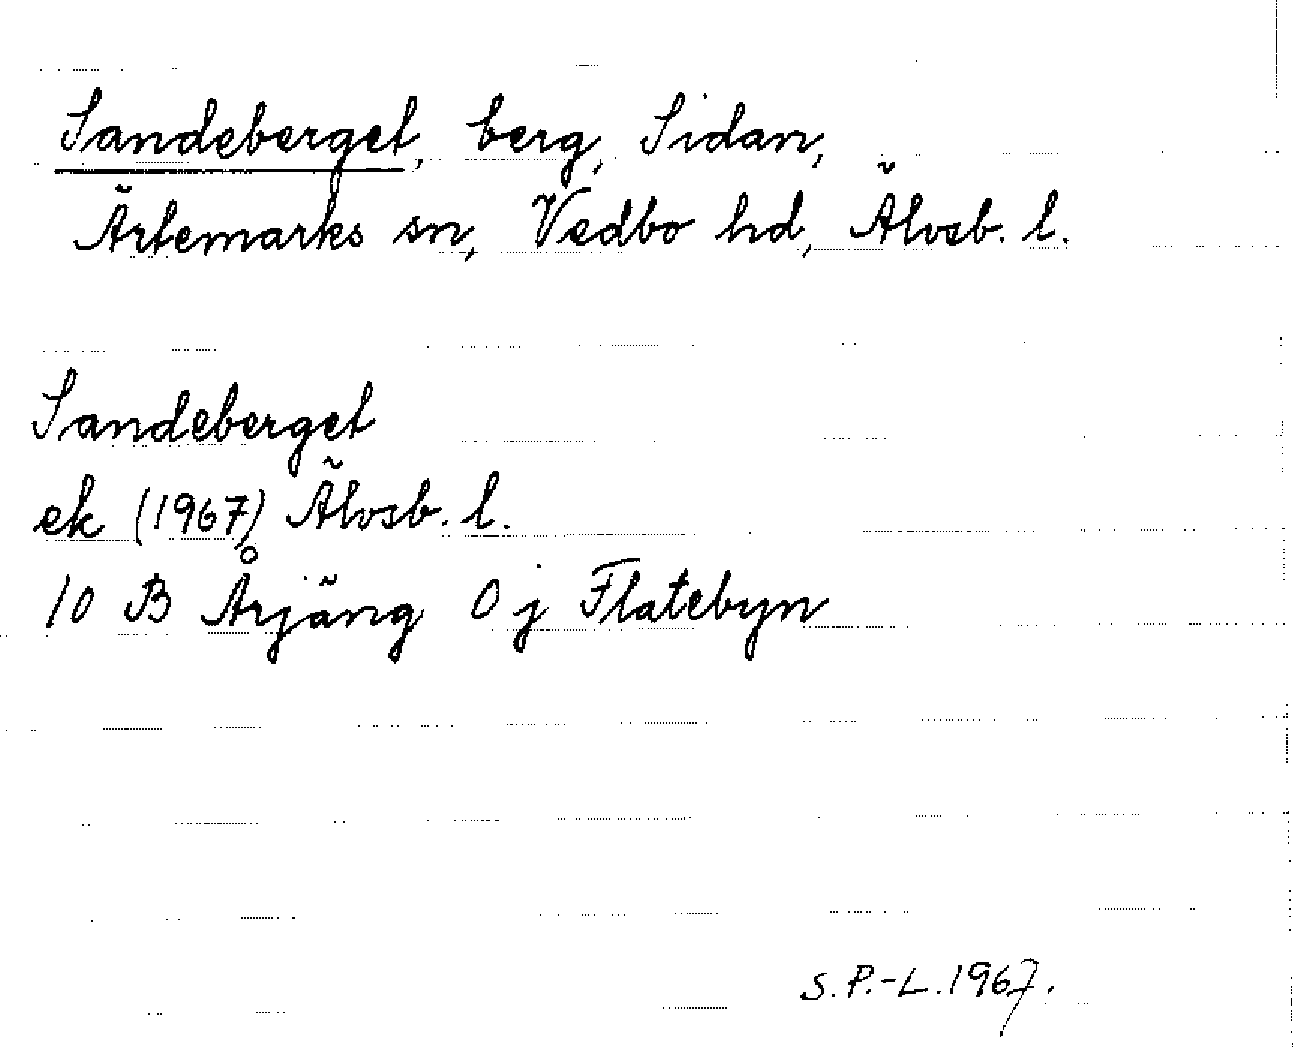 Sandeberget, berg, Sidan,
Ärtemarks sn, Vedbo hd, Älvsb. l.
Sandeberget
ek (1967) Älvsb. l.
10 B Årjäng 0 j Flatebyn
S.P.-L. 1967.